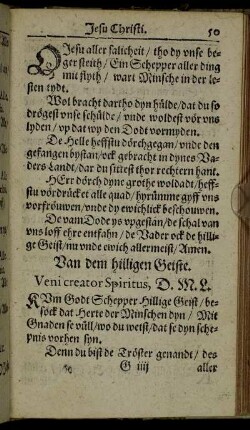 Jesu Christi. 50
O Jesu aller salicheit / tho dy vnse be-
ger steith / Ein Schepper aller ding
mit flyth / wart Minsche in der les-
sten tydt.
Wol bracht dartho dyn hülde / dat du so
drögest vnse schülde / vnde woldest vör vns
lyden / vp dat wy den Dodt vormyden.
De Helle heffstu dörchgegan / vnde den
gefangen bystan / ock gebracht in dynes Va-
ders Landt / dar du sittest thor rechtern hant.
HErr dörch dyne grothe woldadt / heff-
stu vördrücket alle quad / hyrümme gyff vns
vorfröuwen / vnde dy ewichlick beschouwen.
De vam Dode ys vpgestan / de schal van
vns loff ehre entfahn / de Vader ock de hilli-
ge Geist / nu vnde ewich allermeist / Amen.
Van dem hilligen Geiste.
Veni creator Spiritus, D. M. L.
KUm Godt Schepper Hillige Geist / be-
söck dat Herte der Minschen dyn / Mit
Gnaden se vüll / wo du weist / dat se dyn sche-
pnis vorhen syn.
Denn du bist de Tröster genandt / des
G iiij aller